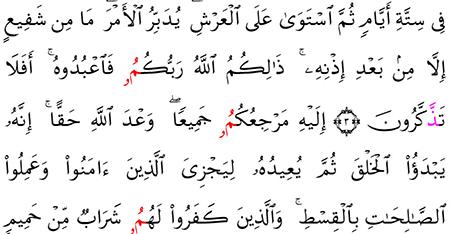 فِى سِتَّةِ أَيَّامٍۢ ثُمَّ ٱسْتَوَىٰ عَلَى ٱلْعَرْشِۖ يُدَبِّرُ ٱلْأَمْرَۖ مَا مِن شَفِيعٍ
إِلَّا مِنۢ بَعْدِ إِذْنِهِۦۚ ذَٰلِكُمُ ٱللَّهُ رَبُّكُمُۥ فَٱعْبُدُوهُۚ أَفَلَا
تَذَّكَّرُونَ ٣ إِلَيْهِ مَرْجِعُكُمُۥ جَمِيعًاۖ وَعْدَ ٱللَّهِ حَقًّاۚ إِنَّهُۥ
يَبْدَؤُا۟ ٱلْخَلْقَ ثُمَّ يُعِيدُهُۥ لِيَجْزِىَ ٱلَّذِينَ ءَامَنُوا۟ وَعَمِلُوا۟
ٱلصَّٰلِحَٰتِ بِٱلْقِسْطِۚ وَٱلَّذِينَ كَفَرُوا۟ لَهُمُۥ شَرَابٌۭ مِّنْ حَمِيمٍ